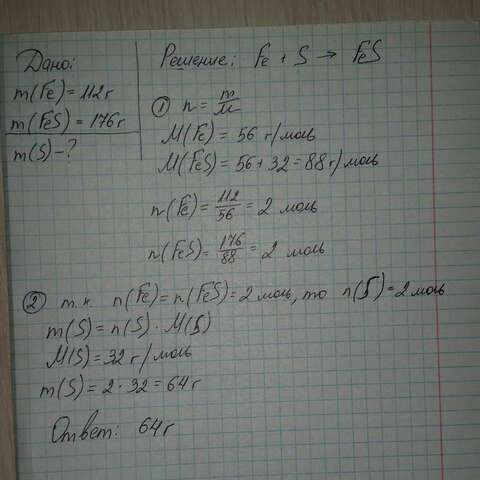 Дано:
m(Fe) = 112 г
m(FeS) = 176 г
m(S) - ?
Решение: Fe + S → FeS
① n = m/M
M(Fe) = 56 г/моль
M(FeS) = 56 + 32 = 88 г/моль
n(Fe) = 112/56 = 2 моль
n(FeS) = 176/88 = 2 моль
② т.к. n(Fe) = n(FeS) = 2 моль, то n(S) = 2 моль
m(S) = n(S) · M(S)
M(S) = 32 г/моль
m(S) = 2 · 32 = 64 г
Ответ: 64 г